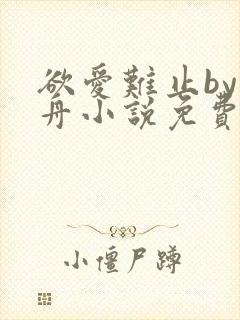 欲爱難止by
丹小説免費
小僵尸蹲